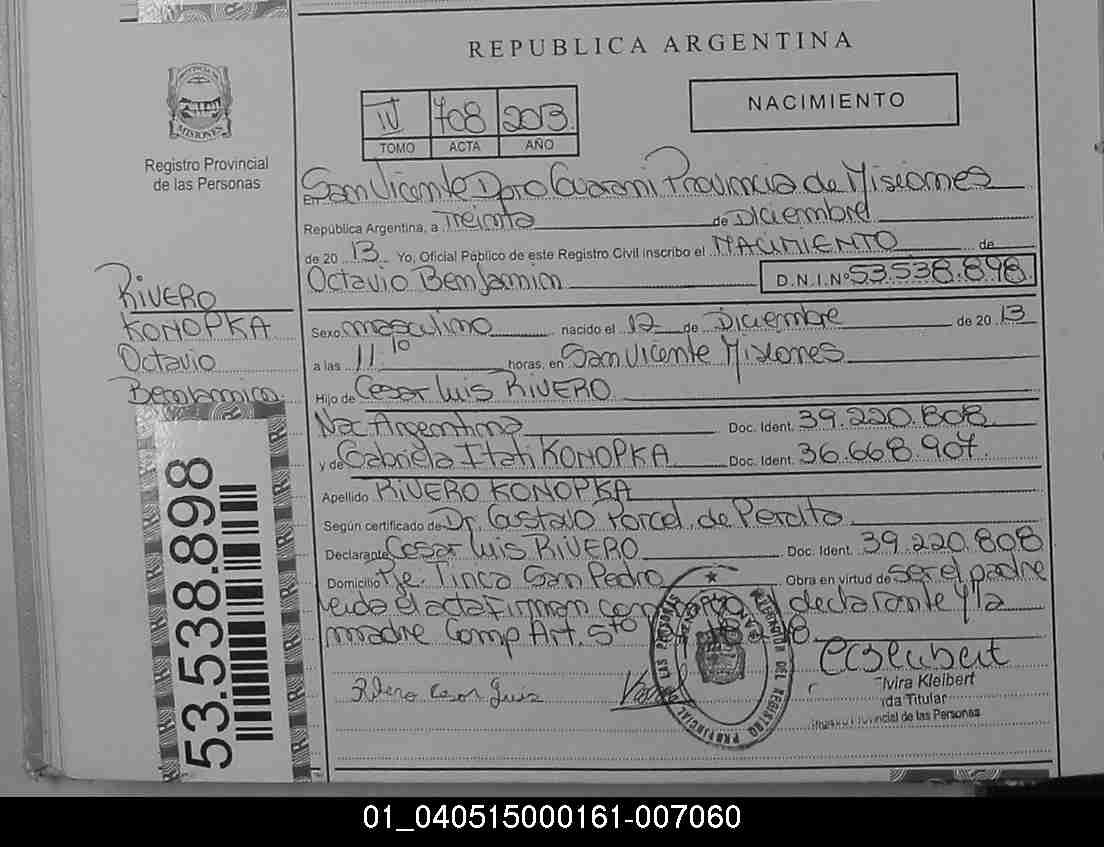 REPUBLICA ARGENTINA
PROVINCIA DE
MISIONES
Registro Provincial
de las Personas
IV 708 2013
TOMO ACTA AÑO
NACIMIENTO
En San Vicente Dpto Guarani Provincia de Misiones
República Argentina, a Treinta de Diciembre
de 20 13 Yo, Oficial Público de este Registro Civil inscribo el NACIMIENTO de
Octavio Benjamin D.N.I.Nº 53.538.898
RIVERO
KONOPKA
Octavio
Benjamin
Sexo masculino nacido el 12 de Diciembre de 20 13
a las 11:10 horas, en San Vicente Misiones
Hijo de Cesar Luis RIVERO
Nac Argentina Doc. Ident. 39.220.808
y de Gabriela Itati KONOPKA Doc. Ident. 36.668.907
Apellido RIVERO KONOPKA
Según certificado de Dr. Gustavo Porcel de Peralta
Declarante Cesar Luis RIVERO Doc. Ident. 39.220.808
Domicilio Pje. Tinco San Pedro Obra en virtud de ser el padre
Leida el acta firman conmigo el declarante y la
madre Comp Art. 5to
Rivero Cesar Luis
lvira Kleibert
da Titular
Provincial de las Personas
REGISTRO PROVINCIAL DE LAS PERSONAS
53.538.898
01_040515000161-007060